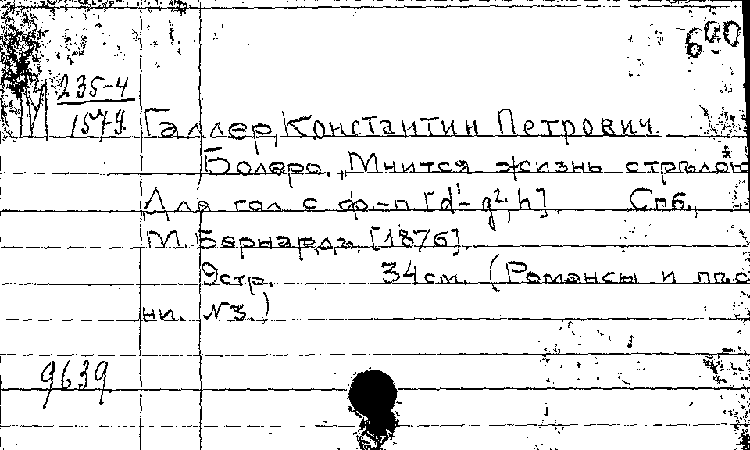 600
М 235-4
1579
Галлер, Константин Петрович.
Болеро. „Мнится жизнь стрелою
Для гол. с ф-п [d¹- g², h]. Спб.,
М. Бернард, [1876].
9стр. 34 см. (Романсы и пес
ни. №3.)
9639